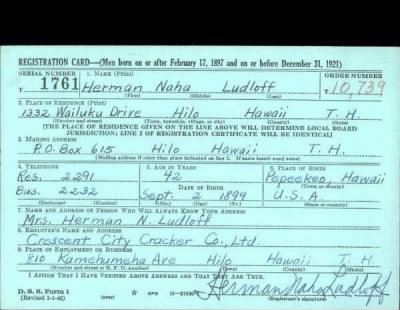 REGISTRATION CARD—(Men born on or after February 17, 1897 and on or before December 31, 1921)
SERIAL NUMBER 1. NAME (Print) ORDER NUMBER
T 1761 Herman Naha Ludloff T 10,739
(First) (Middle) (Last)
2. PLACE OF RESIDENCE (Print)
1332 Wailuku Drive Hilo Hawaii T. H.
(Number and street) (Town, township, village, or city) (County) (State)
[THE PLACE OF RESIDENCE GIVEN ON THE LINE ABOVE WILL DETERMINE LOCAL BOARD
JURISDICTION; LINE 2 OF REGISTRATION CERTIFICATE WILL BE IDENTICAL]
3. MAILING ADDRESS
P.O. Box 615 Hilo Hawaii T. H.
[Mailing address if other than place indicated on line 2. If same insert word same]
4. TELEPHONE 5. AGE IN YEARS 6. PLACE OF BIRTH
Res. 2291 42 Pepeekeo, Hawaii
DATE OF BIRTH (Town or county)
Bus. 2232 Sept. 2 1899 U.S.A.
(Exchange) (Number) (Mo.) (Day) (Yr.) (State or country)
7. NAME AND ADDRESS OF PERSON WHO WILL ALWAYS KNOW YOUR ADDRESS
Mrs. Herman N. Ludloff
8. EMPLOYER'S NAME AND ADDRESS
Crescent City Cracker Co., Ltd.
9. PLACE OF EMPLOYMENT OR BUSINESS
810 Kamehameha Ave Hilo Hawaii T. H.
(Number and street or R. F. D. number) (Town) (County) (State)
I AFFIRM THAT I HAVE VERIFIED ABOVE ANSWERS AND THAT THEY ARE TRUE.
D. S. S. Form 1
(Revised 1-1-42) Herman Naha Ludloff
(Registrant's signature)